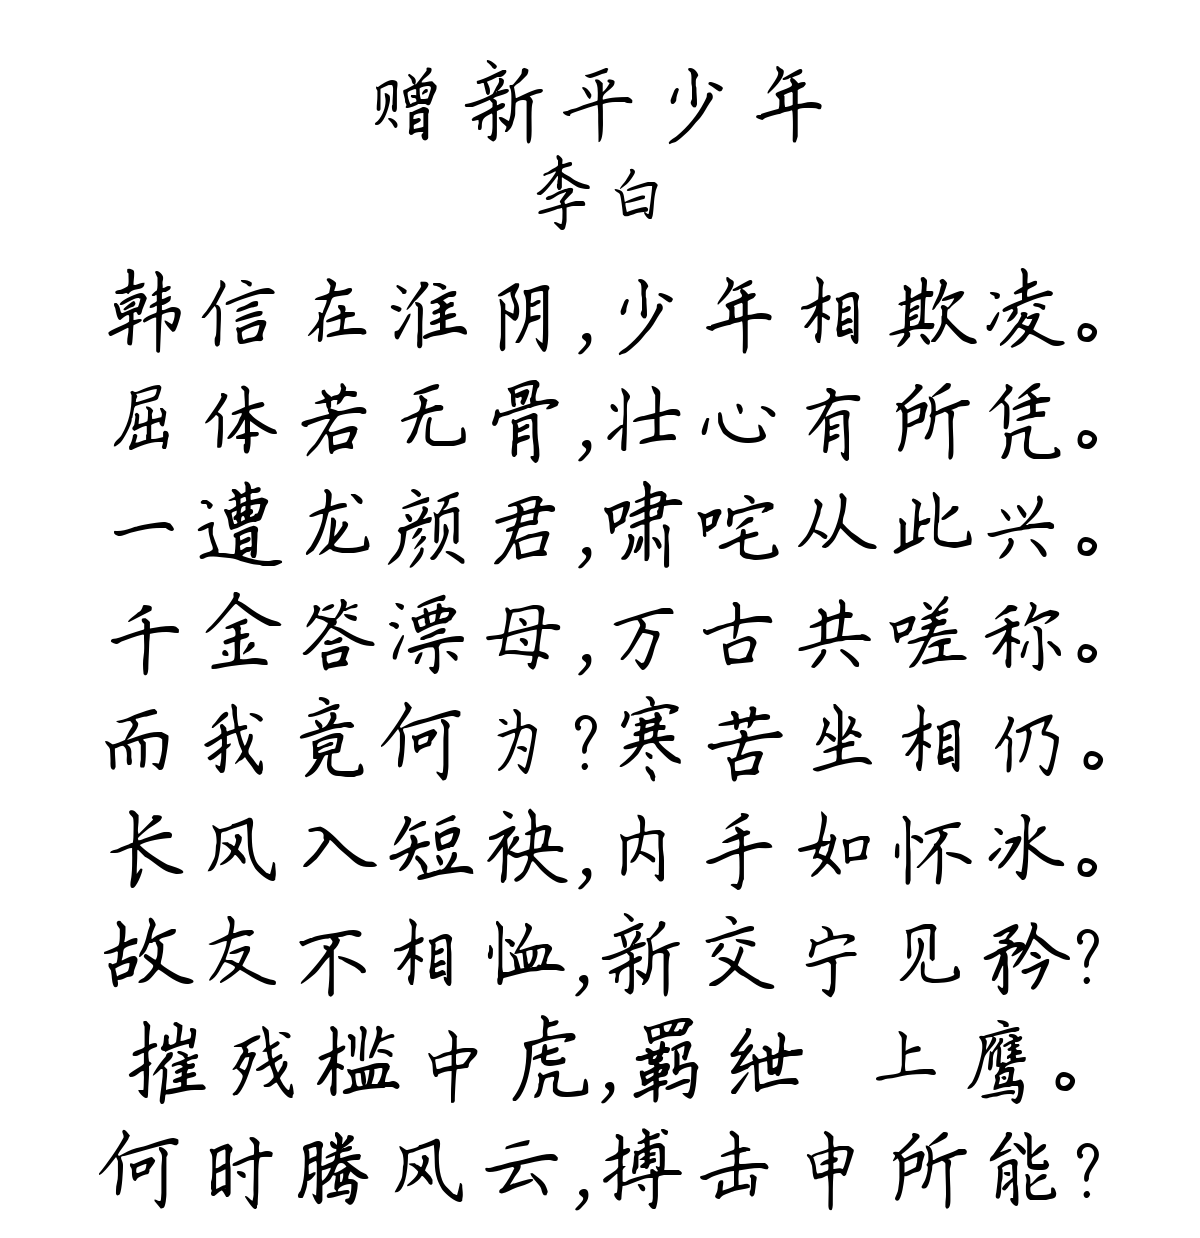 赠新平少年
李白
韩信在淮阴,少年相欺凌。
屈体若无骨,壮心有所凭。
一遭龙颜君,啸咤从此兴。
千金答漂母,万古共嗟称。
而我竟何为?寒苦坐相仍。
长风入短袂,内手如怀冰。
故友不相恤,新交宁见矜?
摧残槛中虎,羁绁 上鹰。
何时腾风云,搏击申所能?